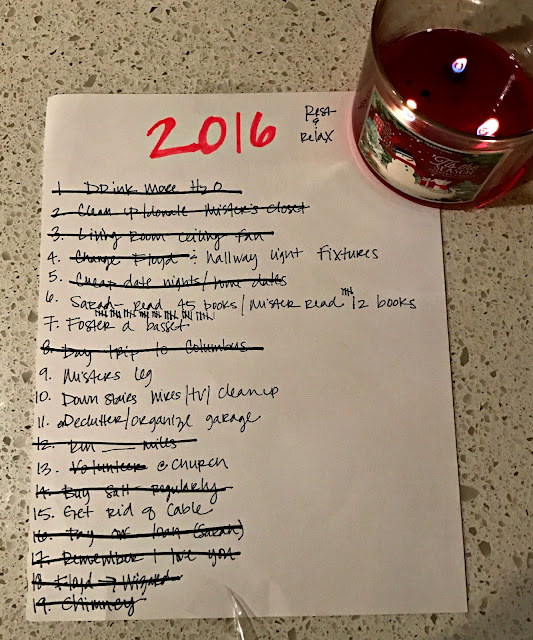 2016
Rest
&
relax
1 Drink more H2O
2. Clean up/donate Mister's closet
3. Living Room Ceiling fan
4. Change Floyd & hallway light fixtures
5. Cheap date nights/home dates
6. Sarah - read 45 books/mister read 12 books
7. Foster a basset
8. Day trip to Columbus
9. Misters leg
10. Down stairs wires/tv/cleanup
11. Declutter/organize garage
12. Run ___ miles
13. Volunteer @ church
14. Buy salt regularly
15. Get rid of cable
16. Pay off loan (Sarah)
17. Remember I love you
18 Floyd →
19. Chimney